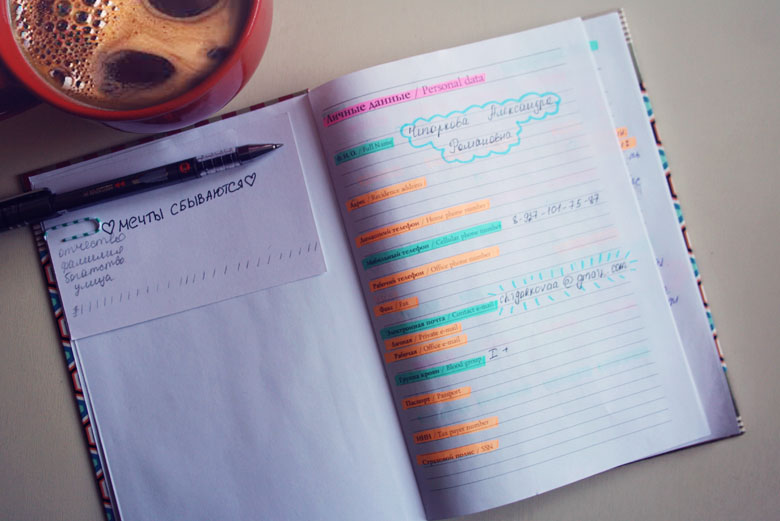 ♡ МЕЧТЫ СБЫВАЮТСЯ ♡
отчество
фамилия
богатство
улица
Личные данные / Personal data
Александра
Романовна
Ф. И. О. / Full Name
Адрес / Residence address
Домашний телефон / Home phone number
Мобильный телефон / Cellular phone number
8-927-101-75-87
Рабочий телефон / Office phone number
Факс / Fax
Электронная почта / Contact e-mail
@ gmail.com
Личная / Private e-mail
Рабочая / Office e-mail
Группа крови / Blood group
I +
Паспорт / Passport
ИНН / Tax payer number
Страховой полис / SSN